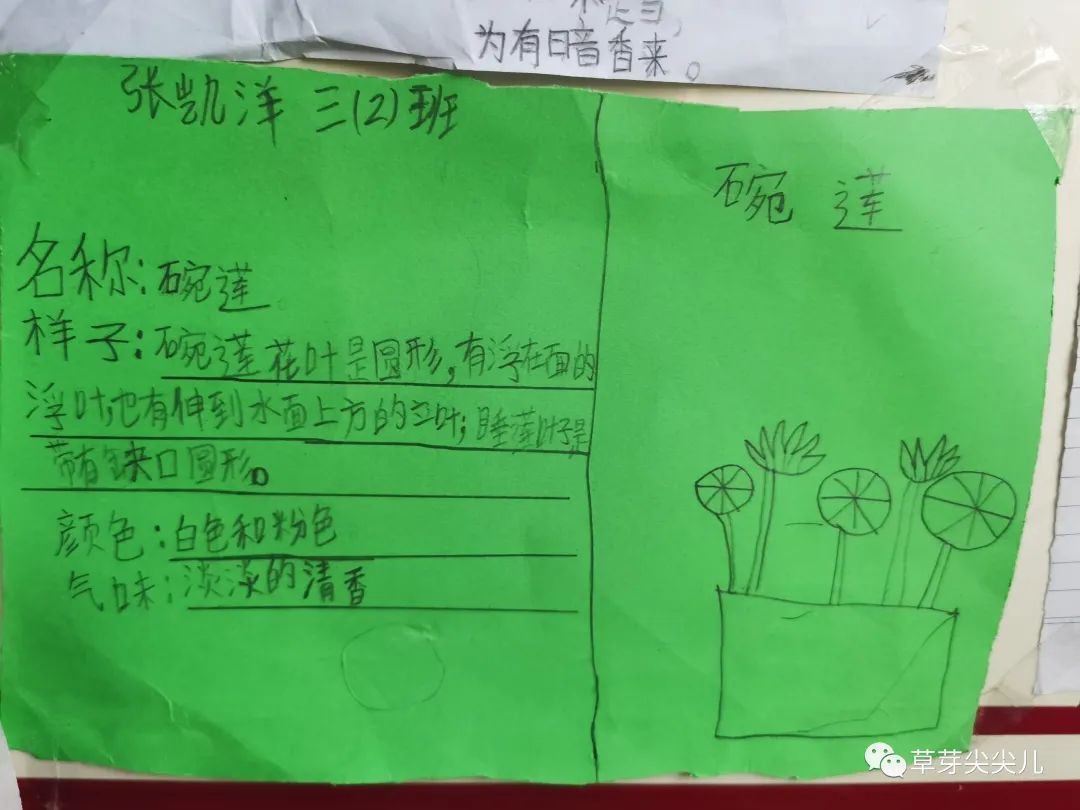 为有暗香来。
张凯洋 三(2)班
名称:碗莲
样子:碗莲花叶是圆形,有浮在面的
浮叶,也有伸到水面上方的立叶;睡莲叶子是
带有缺口圆形。
颜色:白色和粉色
气味:淡淡的清香
碗 莲
草芽尖尖儿